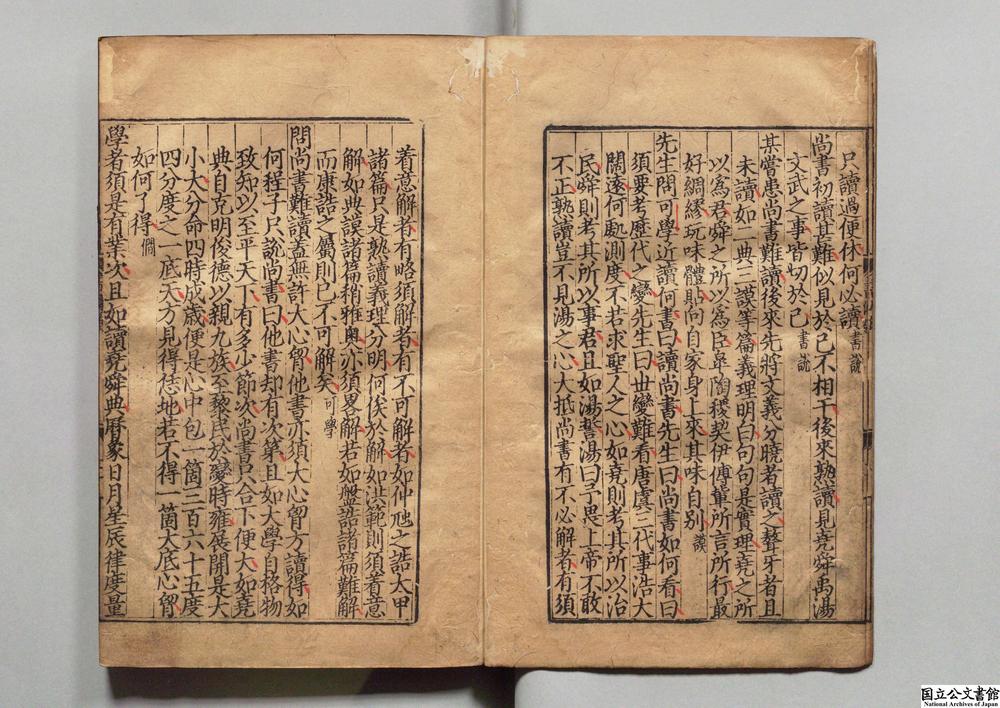 只讀過便休何必讀書說
尚書初讀甚難似見於已不相干後來熟讀見堯舜禹湯
文武之事皆切於已書說
某嘗患尚書難讀後來先將文義分曉者讀之聱牙者且
未讀如二典三謨等篇義理明白句句是實理堯之所
以為君舜之所以為臣皐陶稷契伊傅輩所言所行最
好綢繆玩味體貼向自家身上來其味自別謨
先生問可學近讀何書曰讀尚書先生曰尚書如何看曰
須要考歷代之變先生曰世變難看唐虞三代事浩大
闊遠何處測度不若求聖人之心如堯則考其所以治
民舜則考其所以事君且如湯誓湯曰予畏上帝不敢
不正熟讀豈不見湯之心大抵尚書有不必解者有須
着意解者有略須解者有不可解者如仲虺之誥太甲
諸篇只是熟讀義理分明何俟於解如洪範則須着意
解如典謨諸篇稍雅奧亦須畧解若如盤誥諸篇難解
而康誥之屬則已不可解矣可學
問尚書難讀蓋無許大心胷他書亦須大心胷方讀得如
何程子只說尚書曰他書却有次第且如大學自格物
致知以至平天下有多少節次尚書只合下便大如堯
典自克明俊德以親九族至黎民於變時雍展開是大
小大分命四時成歲便是心中包一箇三百六十五度
四分度之一底天方見得恁地若不得一箇大底心胷
如何了得僩
學者須是有業次且如讀堯舜典曆象日月星辰律度量